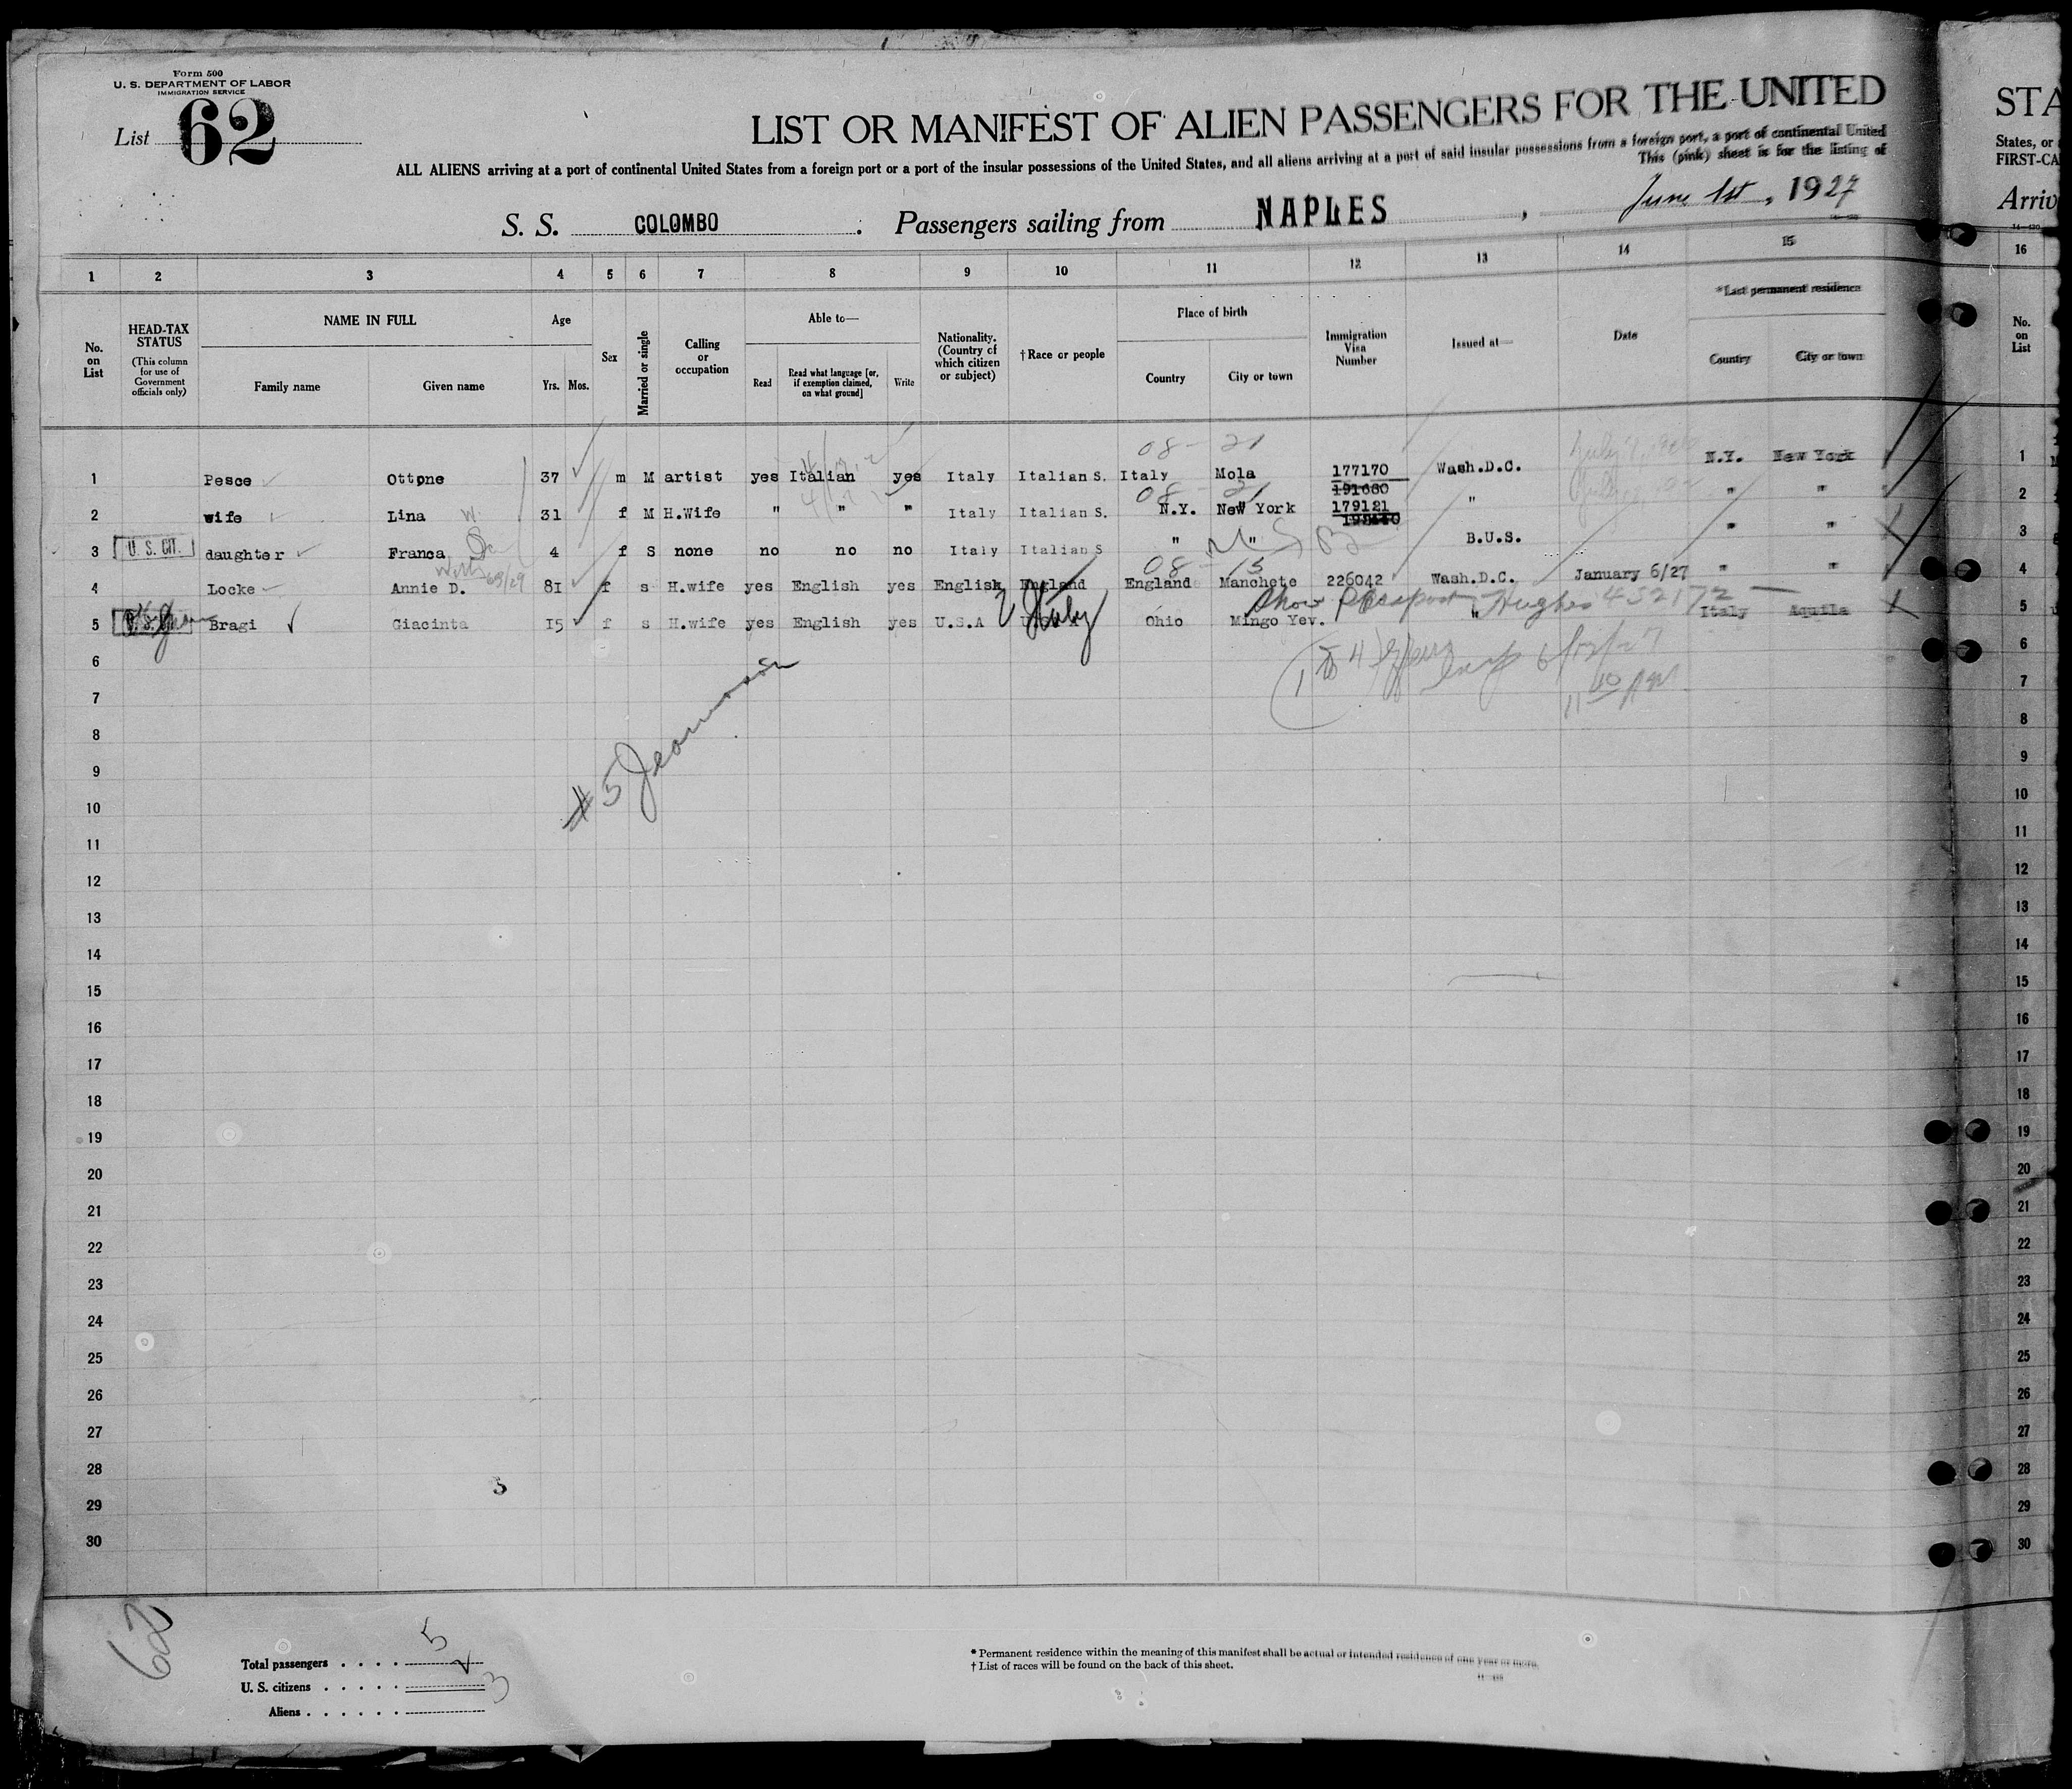 Form 500
U. S. DEPARTMENT OF LABOR
IMMIGRATION SERVICE
List 62
LIST OR MANIFEST OF ALIEN PASSENGERS FOR THE UNITED
ALL ALIENS arriving at a port of continental United States from a foreign port or a port of the insular possessions of the United States, and all aliens arriving at a port of said insular possessions from a foreign port, a port of continental United
This (pink) sheet is for the listing of
S. S. COLOMBO : Passengers sailing from NAPLES , June 1st , 1927
STA
States, or
FIRST-CA
Arriv
1 2 3 4 5 6 7 8 9 10 11 12 13 14 15 16
No. on List
HEAD-TAX STATUS
(This column for use of Government officials only)
NAME IN FULL
Family name
Given name
Age
Yrs. Mos.
Sex
Married or single
Calling or occupation
Able to—
Read
Read what language [or, if exemption claimed, on what ground]
Write
Nationality. (Country of which citizen or subject)
† Race or people
Place of birth
Country
City or town
Immigration Visa Number
Issued at—
Date
*Last permanent residence
Country
City or town
No. on List
08 - 21
1 Pesce Ottone 37 m M artist yes Italian yes Italy Italian S. Italy Mola 177170 Wash.D.C. N.Y. New York 1
191660
08 - 21
2 wife Lina W. 31 f M H.Wife " " " Italy Italian S. N.Y. New York 179121 " " " 2
3 U. S. CIT. daughter Franca 4 f S none no no no Italy Italian S " " B.U.S. " " 3
08 - 15
4 Locke Annie D. 81 f s H.wife yes English yes English England England Manchete 226042 Wash.D.C. January 6/27 " " 4
Show Passport Hughes 452172
5 Bragi Giacinta 15 f s H.wife yes English yes U.S.A Italy Ohio Mingo Yev. " Italy Aquila 5
6 6
7 7
8 8
9 9
10 10
11 11
12 12
13 13
14 14
15 15
16 16
17 17
18 18
19 19
20 20
21 21
22 22
23 23
24 24
25 25
26 26
27 27
28 28
29 29
30 30
# 5
62
Total passengers . . . . 5
U. S. citizens . . . . .
Aliens . . . . . . 3
* Permanent residence within the meaning of this manifest shall be actual or intended residence of one year or more.
† List of races will be found on the back of this sheet.